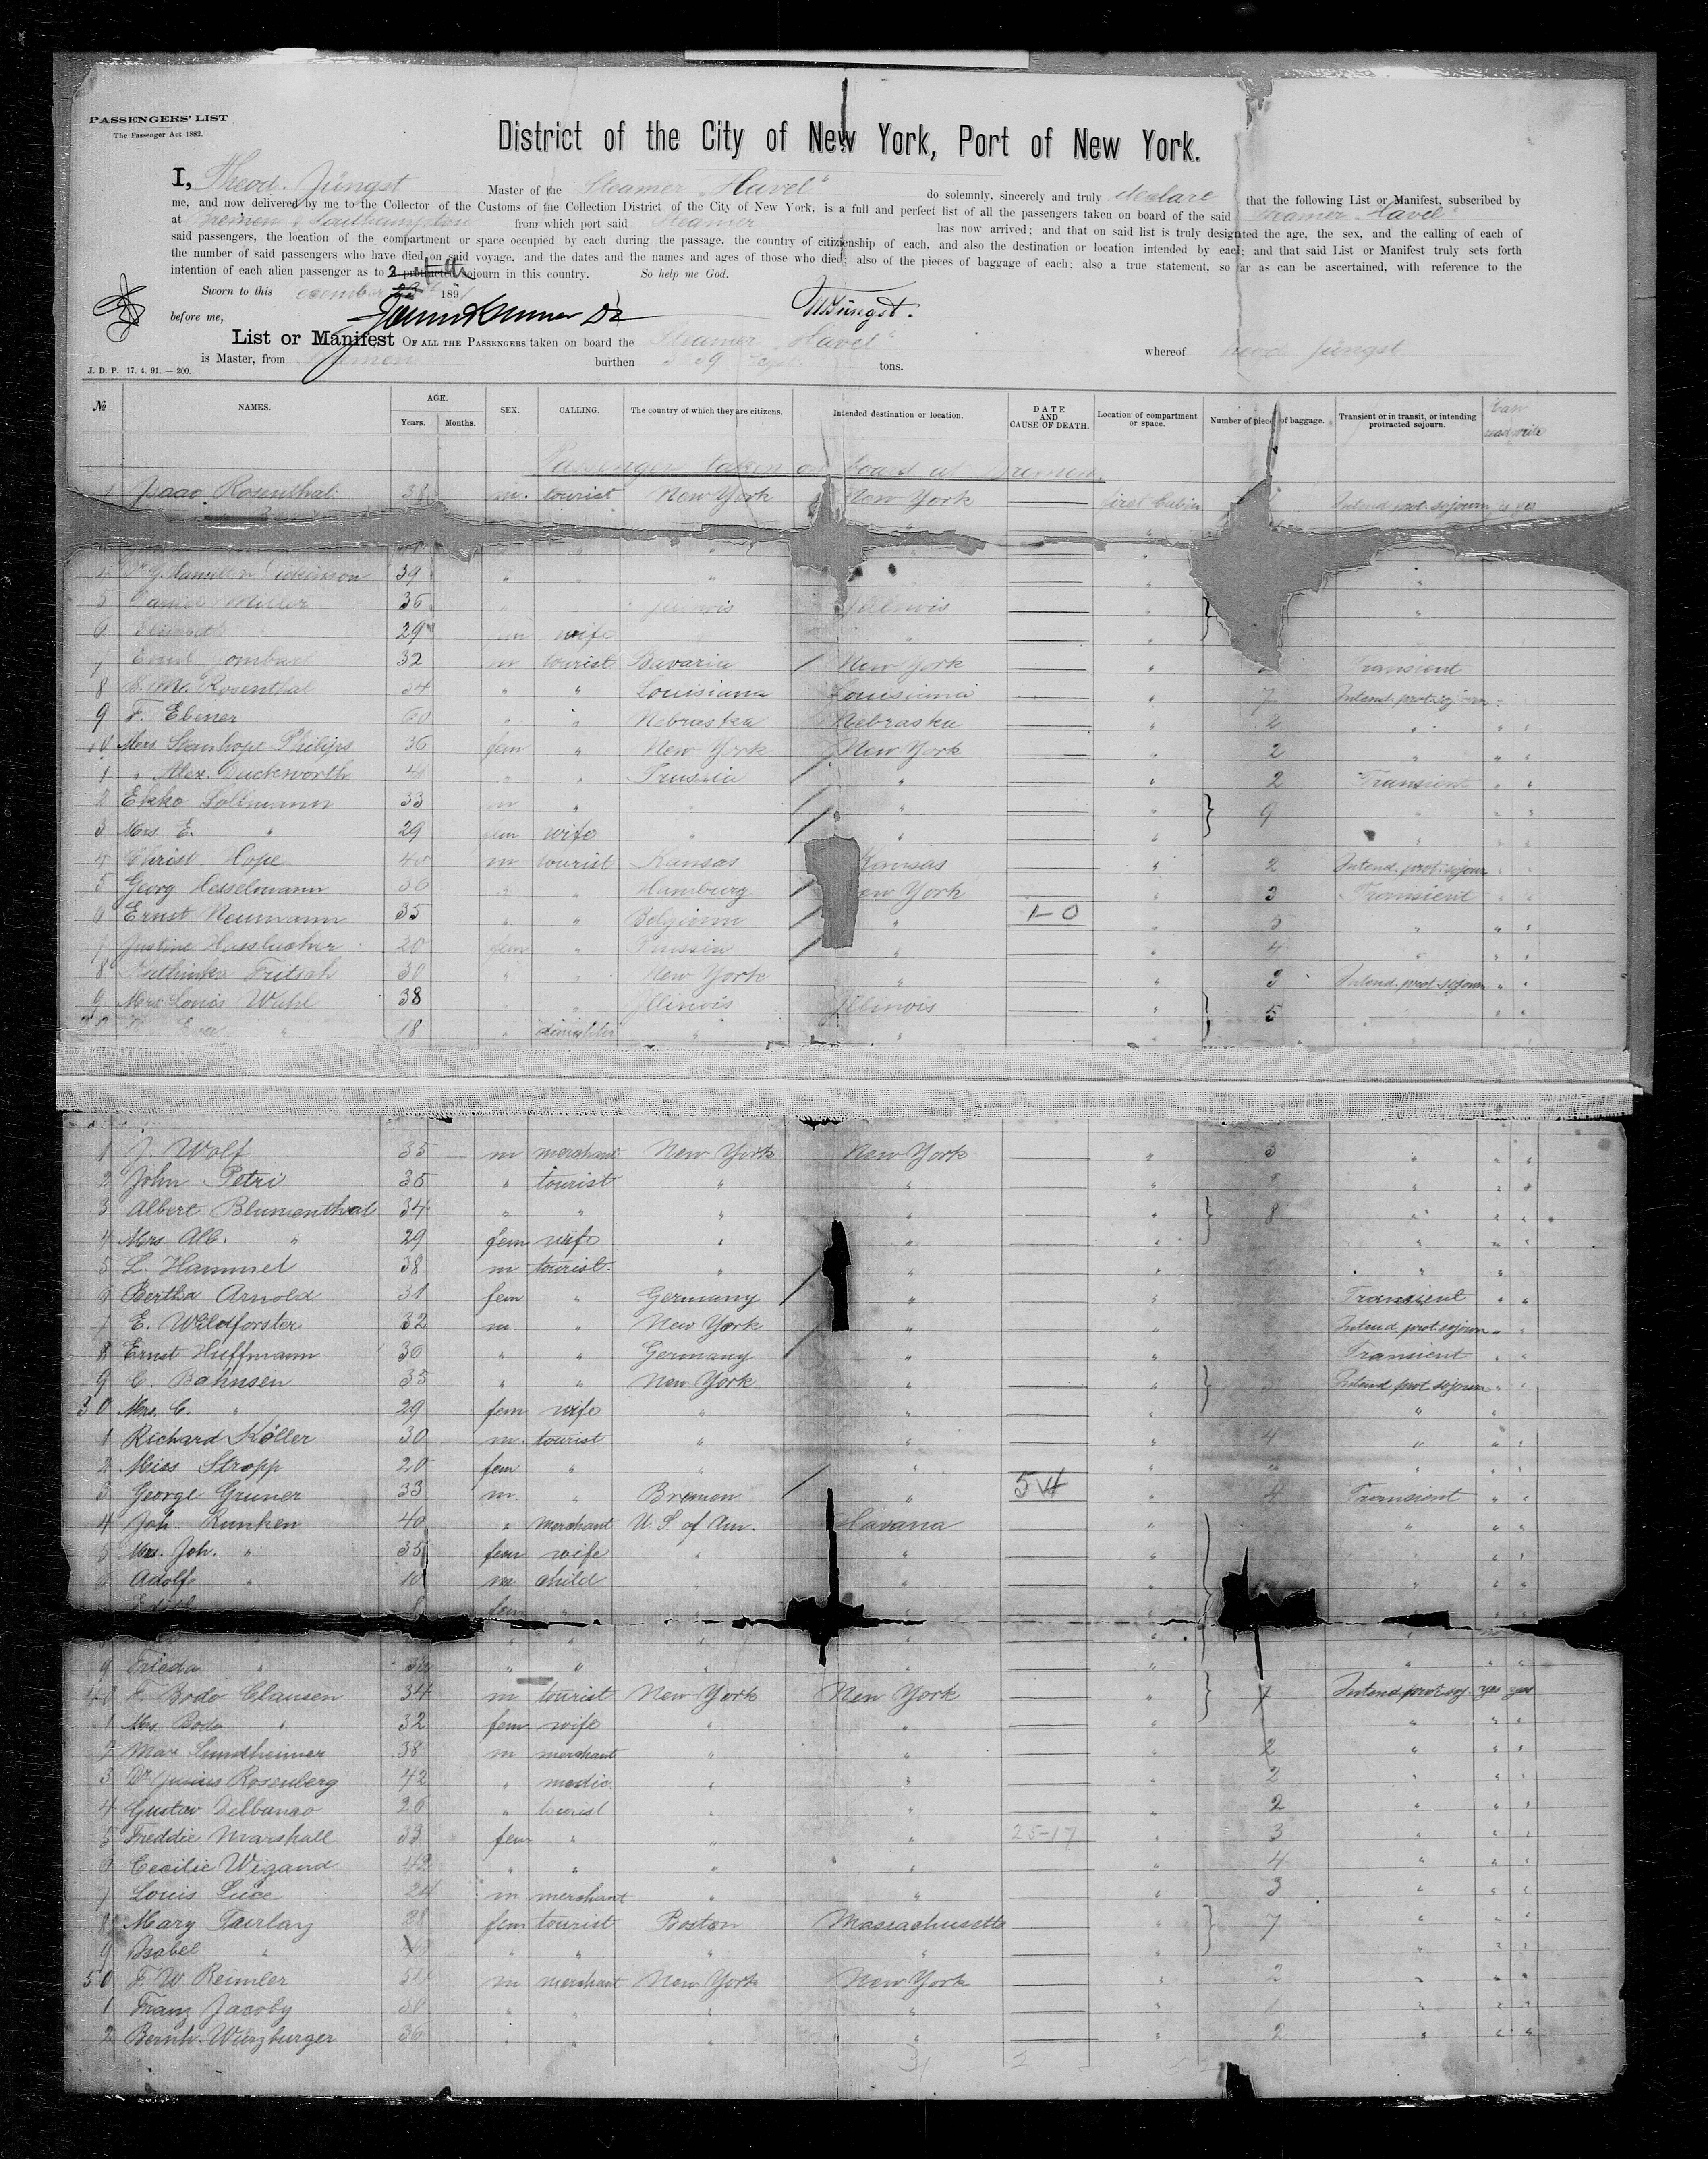 PASSENGERS' LIST
The Passenger Act 1882.
District of the City of New York, Port of New York.
I, Theod. Jüngst Master of the Steamer „Havel“ do solemnly, sincerely and truly declare that the following List or Manifest, subscribed by
me, and now delivered by me to the Collector of the Customs of the Collection District of the City of New York, is a full and perfect list of all the passengers taken on board of the said Steamer „Havel“
at Bremen & Southampton from which port said Steamer has now arrived; and that on said list is truly designated the age, the sex, and the calling of each of
said passengers, the location of the compartment or space occupied by each during the passage, the country of citizenship of each, and also the destination or location intended by each; and that said List or Manifest truly sets forth
the number of said passengers who have died on said voyage, and the dates and the names and ages of those who died; also of the pieces of baggage of each; also a true statement, so far as can be ascertained, with reference to the
intention of each alien passenger as to protracted sojourn in this country. So help me God.
Sworn to this 24th 1891
before me, ThJüngst.
List or Manifest OF ALL THE PASSENGERS taken on board the Steamer „Havel“ whereof Theod. Jüngst
is Master, from Bremen burthen tons.
J. D. P. 17. 4. 91. — 200.
№ NAMES. AGE. Years. Months. SEX. CALLING. The country of which they are citizens. Intended destination or location. DATE AND CAUSE OF DEATH. Location of compartment or space. Number of pieces of baggage. Transient or in transit, or intending protracted sojourn. Can read write
Passengers taken on board at Bremen.
1 Isaac Rosenthal 38 m. tourist New York New York first Cabin Intend. prot. sojourn yes yes
4 Hamilton Dickinson 39 " " " "
5 Daniel Miller 36 " " Illinois Illinois " "
6 Elisabeth " 29 fem wife " " "
7 Emil 32 m tourist Bavaria New York " Transient
8 S. Mc. Rosenthal 34 " " Louisiana Louisiana " 7 Intend. prot. sojourn "
9 F. Ebener 60 " " Nebraska Nebraska " 2 " " "
10 Mrs. Stanhope Philips 36 fem " New York New York " 2 " " "
1 " Alex. Duckworth 41 " " Prussia " " 2 Transient " "
2 Ekko Sollmann 33 m " " " " 9 " " "
3 Mrs. E. " 29 fem wife " " " " " "
4 Christ. Hope 40 m tourist Kansas Kansas " 2 Intend. prot. sojourn " "
5 Georg Hesselmann 36 " " Hamburg New York " 3 Transient " "
6 Ernst Neumann 35 " " Belgium " 1-0 " 5 " " "
7 Justine Hasslacher 20 fem " Prussia " " 4 " " "
8 Kathinka Fritsch 30 " " New York " " 3 Intend. prot. sojourn " "
9 Mrs. Louis Wahl 38 " " Illinois Illinois " 5 " " "
20 " 18 " daughter " " " " "
1 J. Wolf 35 m merchant New York New York " 3 " " "
2 John Petri 35 " tourist " " " " " "
3 Albert Blumenthal 34 " " " " " 8 " " "
4 Mrs. Alb. " 29 fem wife " " " " " "
5 L. Hammel 38 m tourist. " " " " "
6 Bertha Arnold 31 fem " Germany " " Transient " "
7 E. Wildforster 32 m " New York " " Intend. prot. sojourn " "
8 Ernst Huffmann 30 " " Germany " " Transient " "
9 C. Bahnsen 35 " " New York " " Intend. prot. sojourn " "
30 Mrs. C. " 29 fem wife " " " " "
1 Richard Köller 30 m. tourist " " " 4 " " "
2 Miss Stropp 20 fem " " " " " " "
3 George Gruner 33 m. " Bremen " 54 " 4 Transient " "
4 Joh. Runken 40 " merchant U. S. of Am. Havana " " " "
5 Mrs. Joh. " 35 fem wife " " " " " "
6 Adolf " 10 m child " " " " " "
Edith 8 fem " " " "
9 Frieda " " " " " " " " "
40 F. Bodo Clausen 34 m tourist New York New York " 7 Intend prot soj. yes yes
1 Mrs. Bodo " 32 fem wife " " " " " "
2 Max Sundheimer 38 m merchant " " " 2 " " "
3 Dr Julius Rosenberg 42 " medic. " " " 2 " " "
4 Gustav Delbanco 26 " tourist " " " 2 " " "
5 Freddie Marshall 33 fem " " " 25-17 " 3 " " "
6 Cecilie Wigand 42 " " " " " 4 " " "
7 Louis Luce 24 m merchant " " " 3 " " "
8 Mary Fairlay 28 fem tourist Boston Massachusetts " 7 " " "
9 Isabel " " " " " " " " "
50 F. W. Reimler 54 m merchant New York New York " 2 " " "
1 Franz Jacoby 30 " " " " " 1 " " "
2 Bernh. Würzburger 36 " " " " " 2 " " "